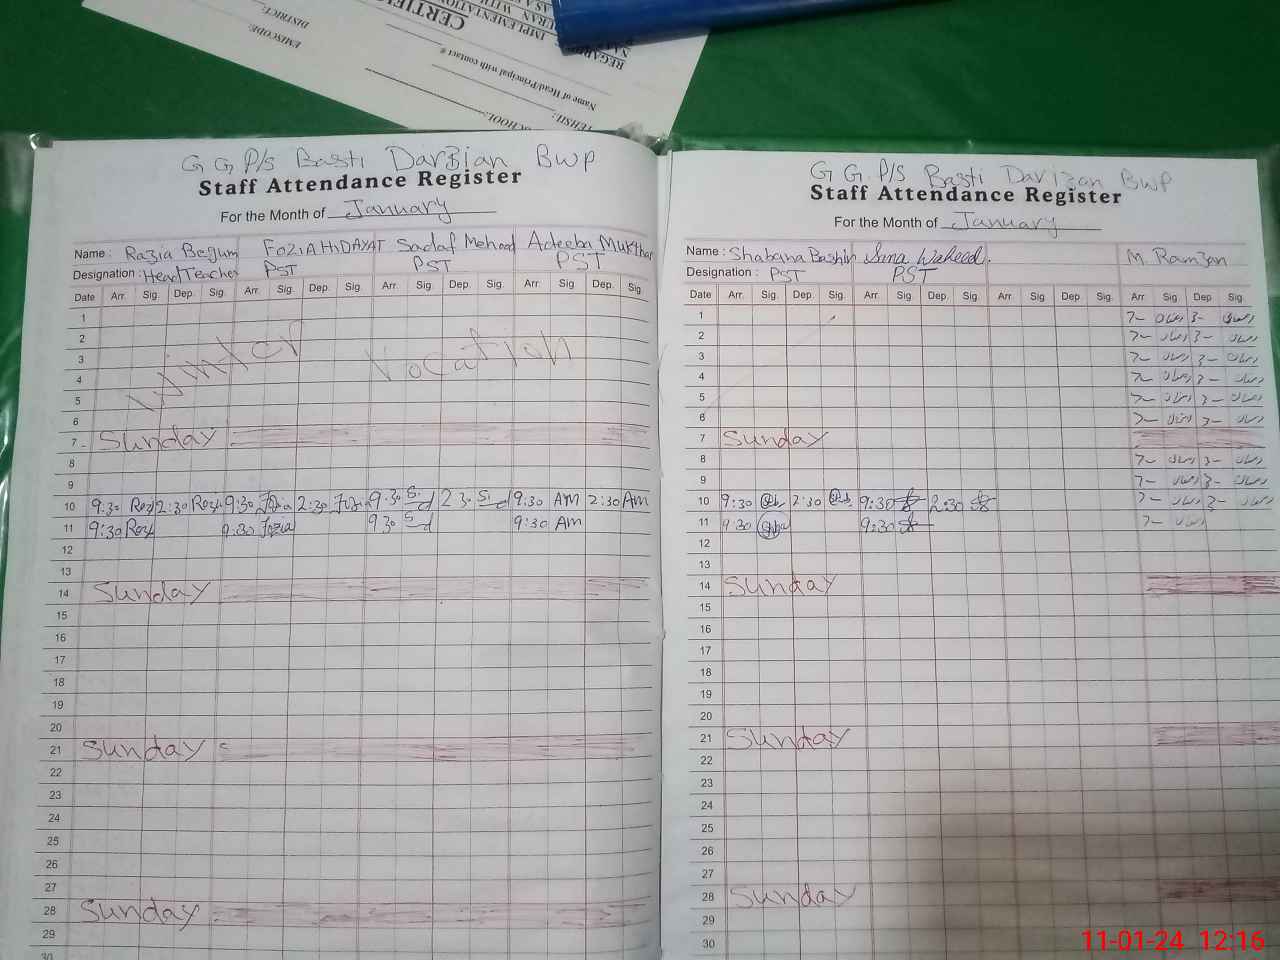 CERTIFI
IMPLEMENTATION
URAN WITH
AS A
REGARD
NAZ
DISTRICT:
EMISCODE:
Name of Head/Principal with contact #
TEHSIL:
SCHOOL:
G G P/s Basti Darzian BWP
Staff Attendance Register
For the Month of January
Name : Razia Begum FOZIA HIDAYAT Sadaf Mehood Adeeba Mukthar
Designation : Head Teacher PST PST PST
Date Arr. Sig. Dep. Sig. Arr. Sig. Dep. Sig. Arr. Sig. Dep. Sig. Arr Sig Dep. Sig
1
2
3
4
5
6
Winter Vocation
7 Sunday
8
9
10 9:30 Roz 2:30 Roz 9:30 Fozia 2:30 Fozia 9:30 2:30 9:30 AM 2:30 AM
11 9:30 Roz 9:30 Fozia 9:30 9:30 AM
12
13
14 Sunday
15
16
17
18
19
20
21 Sunday
22
23
24
25
26
27
28 Sunday
29
30
G G P/s Basti Darizan BWP
Staff Attendance Register
For the Month of January
Name : Shabana Bashir Sana Waheed. M. Ramzan
Designation : PST PST
Date Arr. Sig. Dep. Sig. Arr. Sig. Dep. Sig. Arr. Sig. Dep. Sig. Arr Sig Dep. Sig
1 7- 3-
2 7- 3-
3 7- 3-
4 7- 3-
5 7- 3-
6 7- 3-
7 Sunday
8 7- 3-
9 7- 3-
10 9:30 2:30 9:30 2:30 7- 3-
11 9:30 9:30 7-
12
13
14 Sunday
15
16
17
18
19
20
21 Sunday
22
23
24
25
26
27
28 Sunday
29
30
11-01-24 12:16